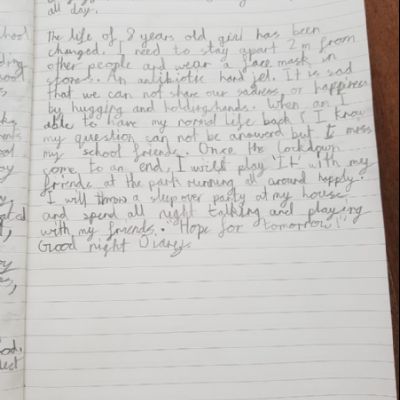 all day.
The life of 8 years old girl has been
changed. I need to stay apart 2m from
other people and wear a face mask in
stores. An antibiotic hand jel. It is sad
that we can not share our sadness or happiness
by hugging and holding hands. When am I
able to have my normal life back? I know
my question can not be answered but I miss
my school friends. Once the lockdown
come to an end, I will play 'It' with my
friends at the park running all around happily.
I will throw a sleepover party at my house
and spend all night talking and playing
with my friends. "Hope for tomorrow!"
Good night Diary.